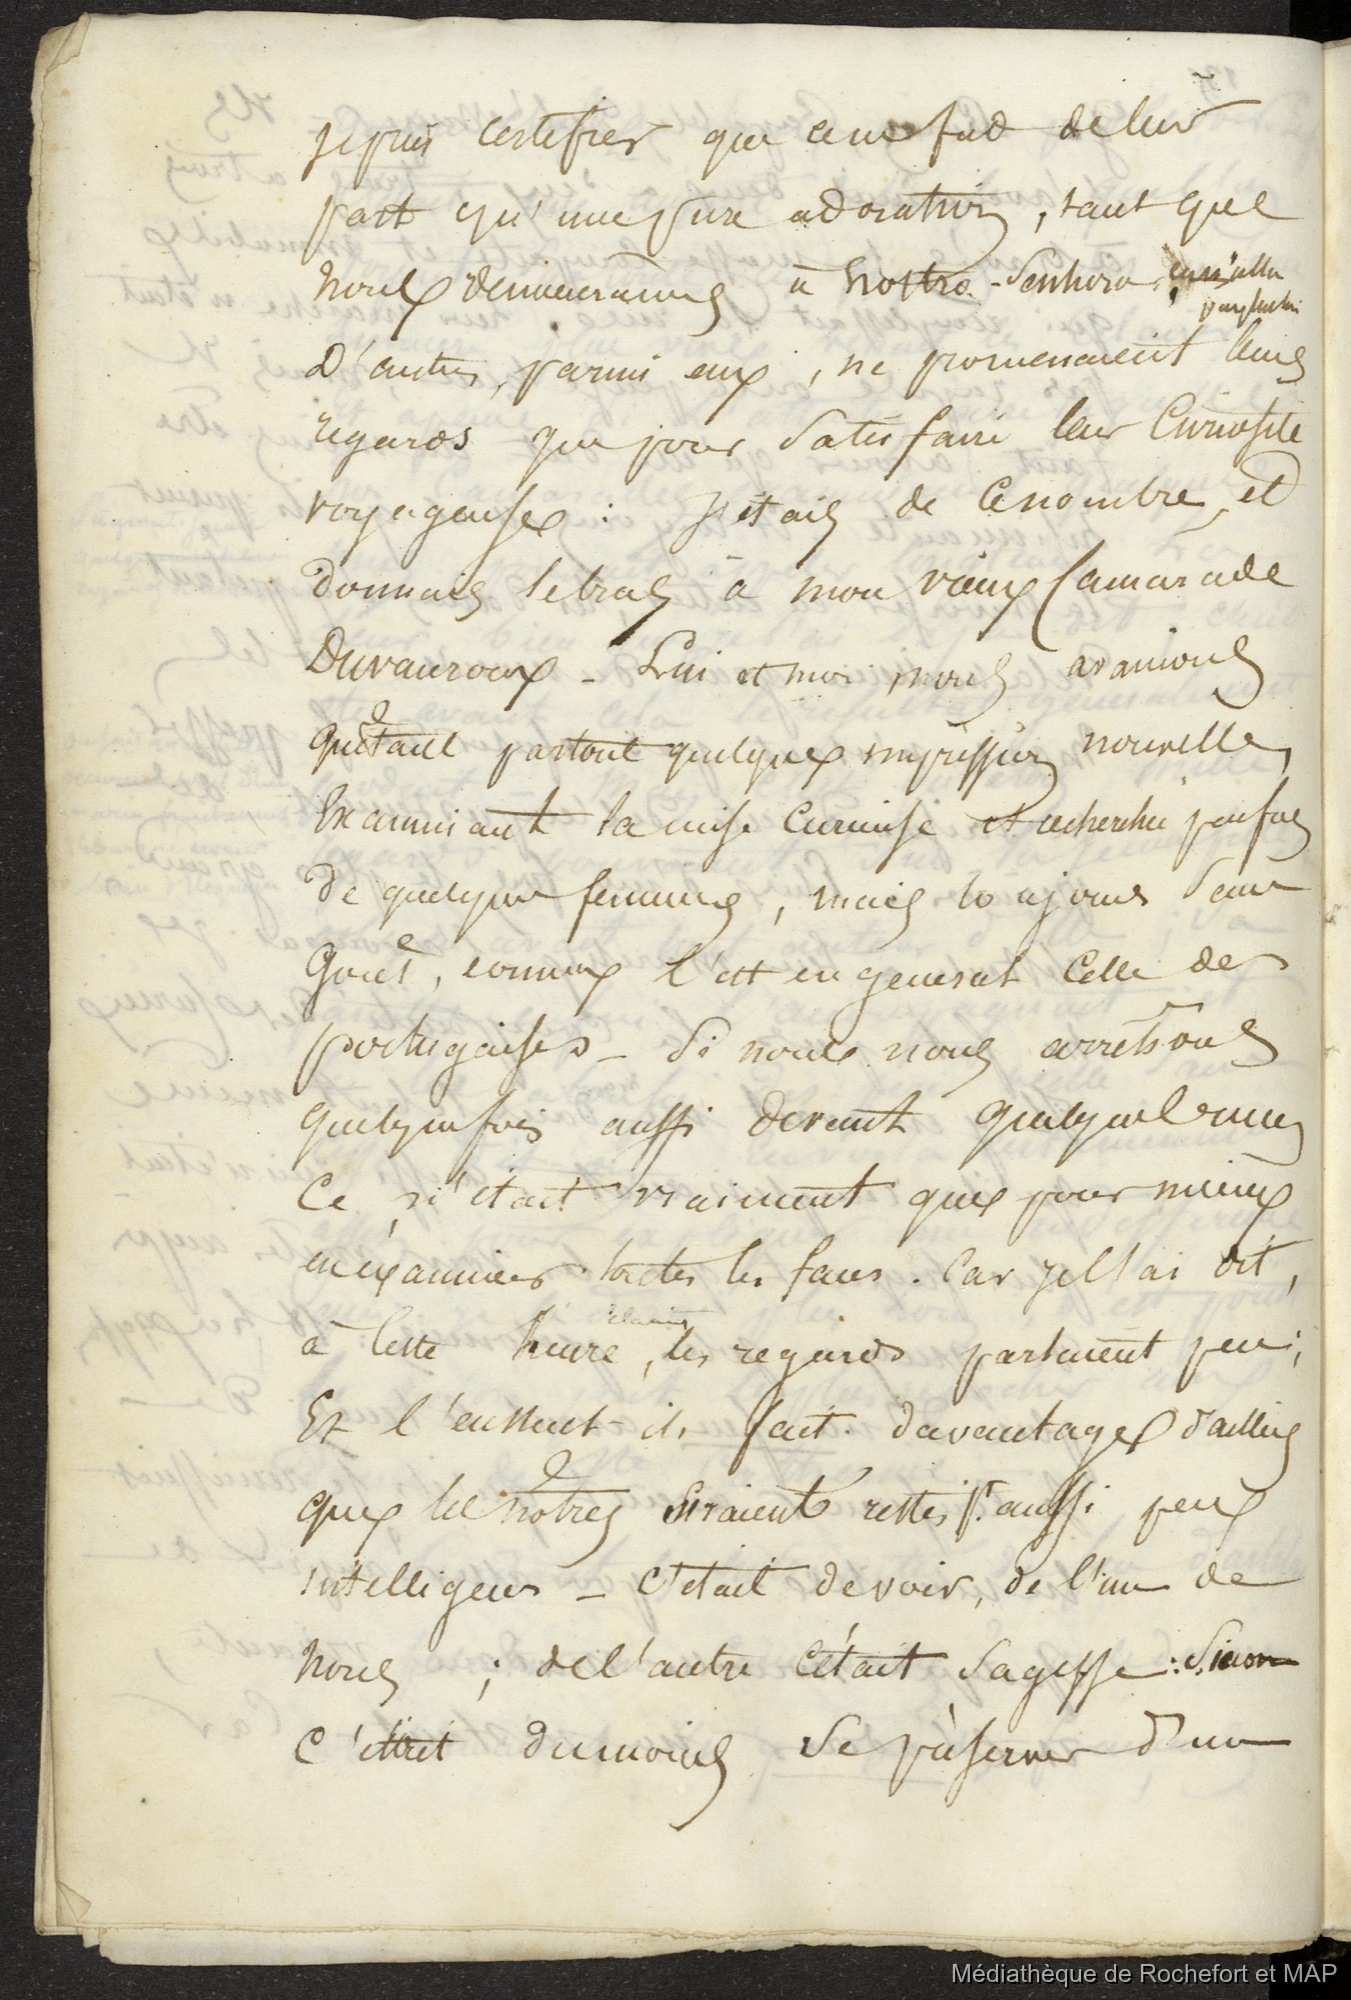 je puis certifier que ce ne fut de leur
part qu'une pure adoration, tant que
nous demeurames à Nostra-Senhora,
D'autres, parmi eux, ne promenaient leurs
regards que pour satisfaire leur Curiosité
voyageuse : j'étais de ce nombre, et
donnais le bras à mon vieux Camarade
Duvauroux - Lui et moi nous avamions
Quêtant partout quelque impression nouvelle,
Examinant la mise curieuse et recherchée parfois
de quelques femmes, mais toujours sans
Goût, comme l'est en general celle des
portugaises - Si nous nous arrêtions
quelquefois aussi devant quelques unes
Ce n'était vraiment que pour mieux
en éxaminer toutes les faces. Car je l'ai dit,
à cette heure, les regards parlaient peu ;
Et l'eussent-ils fait davantage d'ailleurs
que les nôtres seraient restés pt. aussi peu
intelligens - C'était devoir, de l'un de
nous ; de l'autre c'était sagesse : Sinon
c'était du moins se préserver d'un
Médiathèque de Rochefort et MAP